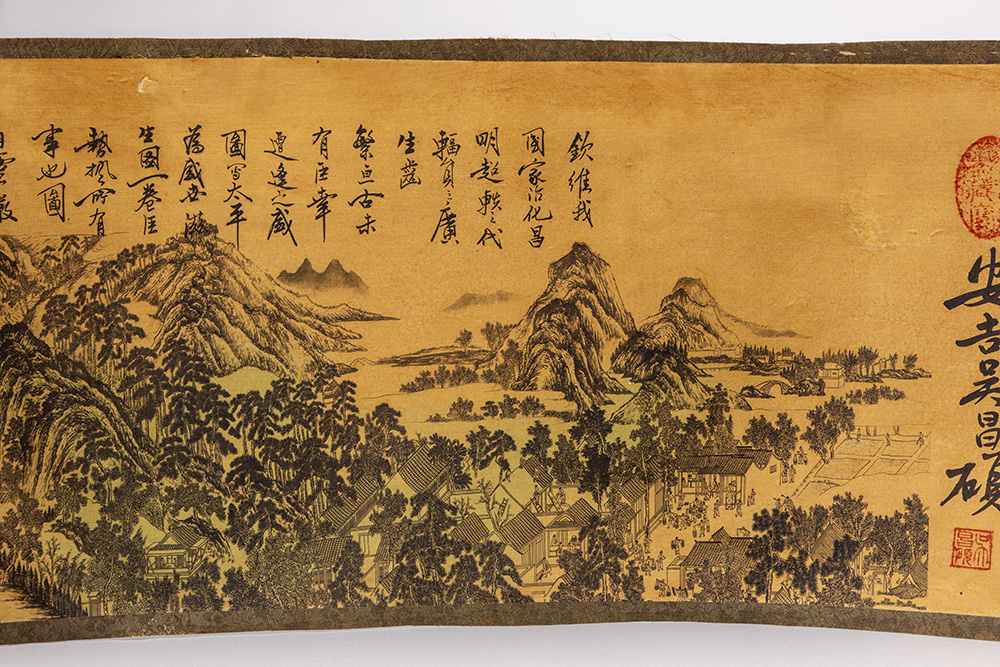 安吉吳昌碩
欽維我
國家治化昌
明超軼三代
輻員之廣
生齒
繁亘古未
有臣幸
遭逢之盛
圖寫太平
為盛世滋
生圖一卷臣
所有
事也圖
自靈巖